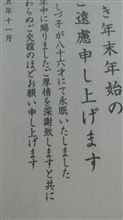 き年末年始の
ご遠慮申し上げます
しづ子が八十六才にて永眠いたしました
年中に賜りましたご厚情を深謝致しますと共に
わらぬご交誼のほどお願い申し上げます
五年十一月